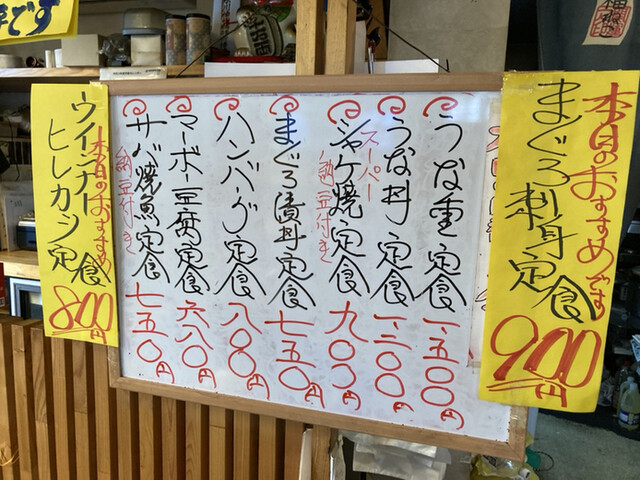 本日のおすすめです
まぐろ刺身定食
900円
うな重定食 一、五〇〇円
うな丼定食 一、二〇〇円
スーパー
シャケ焼定食 九〇〇円
納豆付き
まぐろ漬丼定食 七五〇円
ハンバーグ定食 八〇〇円
マーボー豆腐定食 六八〇円
サバ焼魚定食 七五〇円
納豆付き
本日のおすすめ
ウインナー
ヒレカツ定食
800円
です